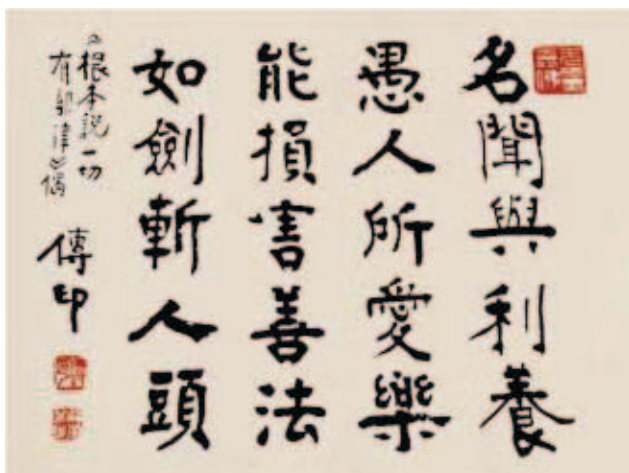 名聞與利養
愚人所愛樂
能損害善法
如劍斬人頭
根本説一切
有部律偈
傳印